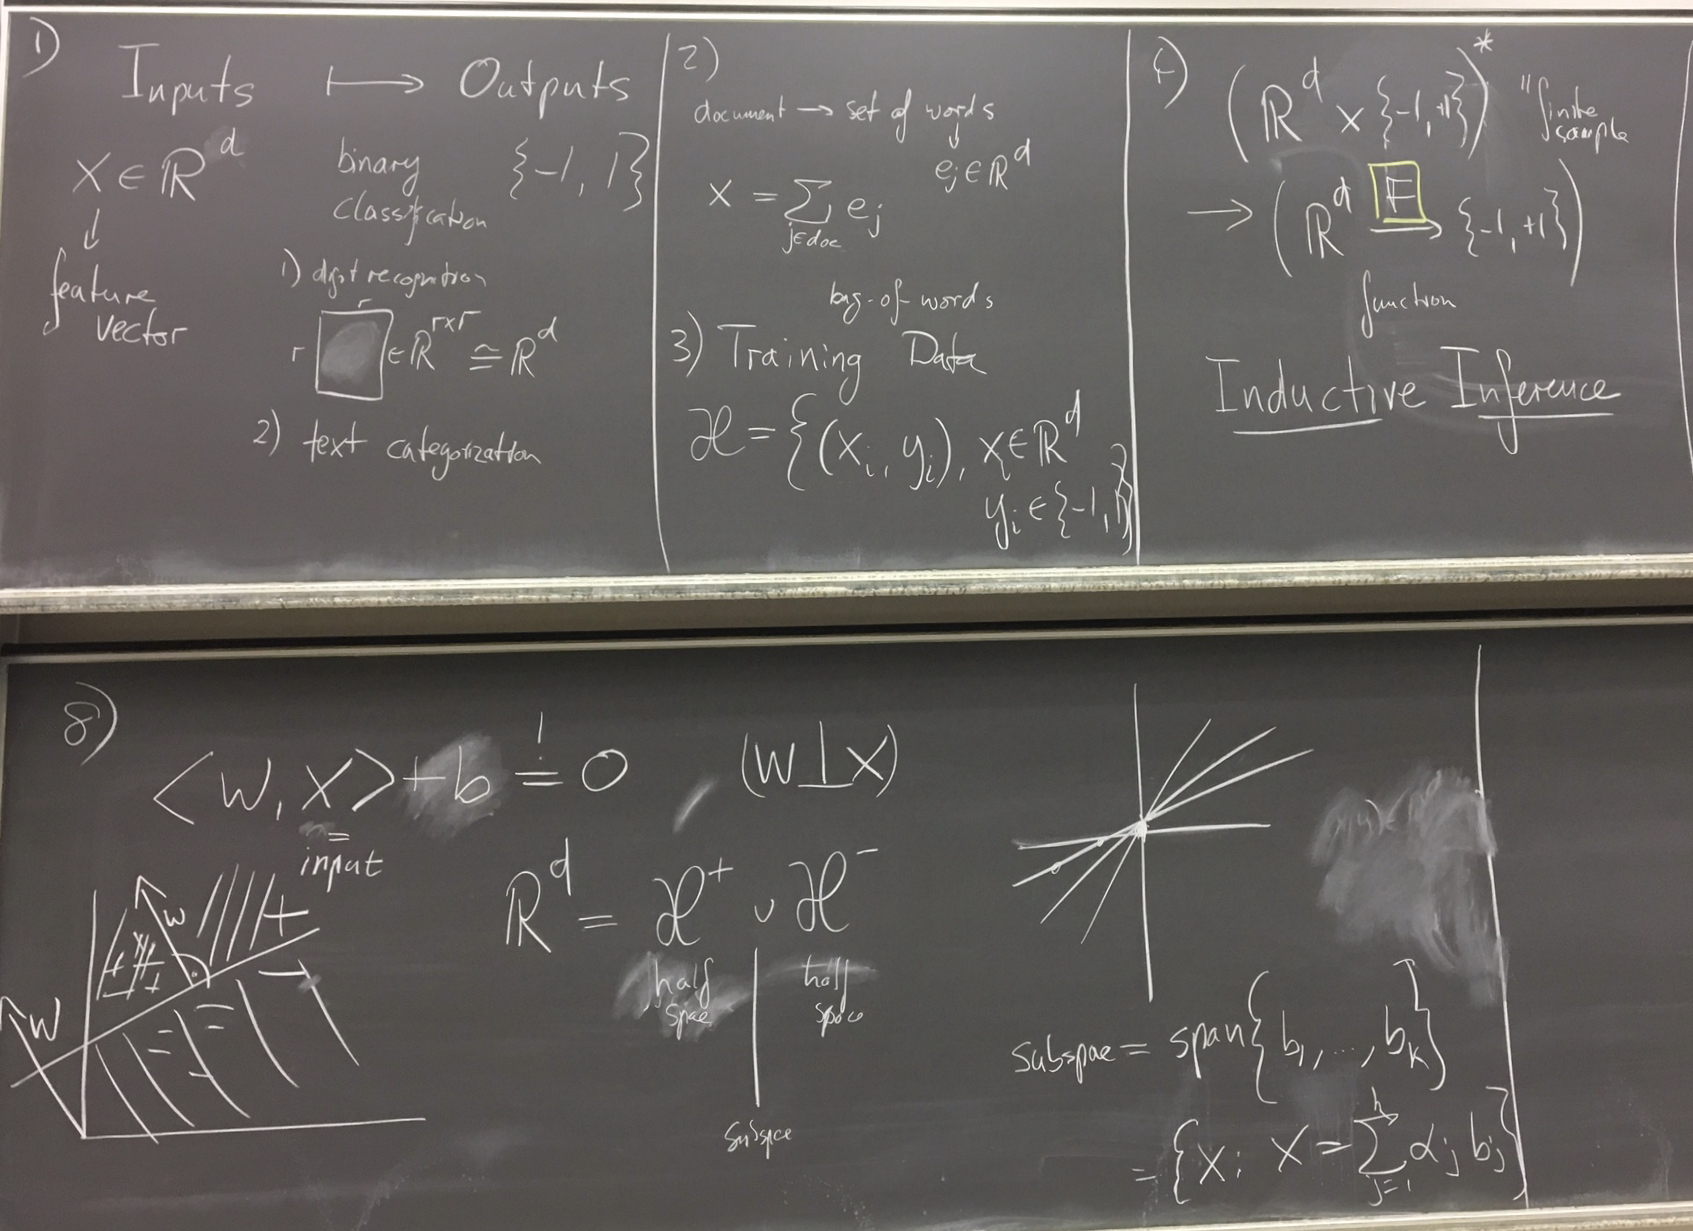 1)
Inputs ⟼ Outputs
x ∈ ℝ^d
↓
feature
vector
binary
classification
{-1, 1}
1) digit recognition
r
r ∈ ℝ^{r×r} ≅ ℝ^d
2) text categorization
2)
document → set of words
↓
e_j ∈ ℝ^d
x = Σ_{j∈doc} e_j
bag-of-words
3) Training Data
𝓗 = {(x_i, y_i), x_i ∈ ℝ^d
y_i ∈ {-1, 1}}
4)
(ℝ^d × {-1, +1})^* "finite
sample
→ (ℝ^d F→ {-1, +1})
function
Inductive Inference
8)
<w, x> + b =! 0 (w ⊥ x)
input
ℝ^d = 𝓗^+ ∪ 𝓗^-
half
spae
half
space
subspce
w
+
w
-
subspae = span{b_1, ..., b_k}
= {x: x = Σ_{j=1}^k α_j b_j}